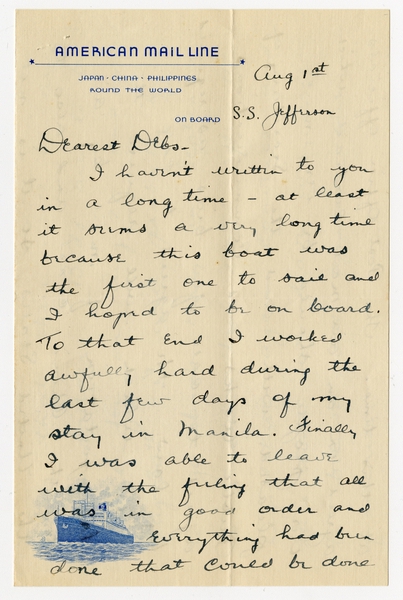 AMERICAN MAIL LINE
JAPAN · CHINA · PHILIPPINES
ROUND THE WORLD
Aug 1st
ON BOARD S.S. Jefferson
Dearest Debs-
I haven't written to you
in a long time - at least
it seems a very long time
because this boat was
the first one to sail and
I hoped to be on board.
To that end I worked
awfully hard during the
last few days of my
stay in Manila. Finally
I was able to leave
with the feeling that all
was in good order and
everything had been
done that could be done